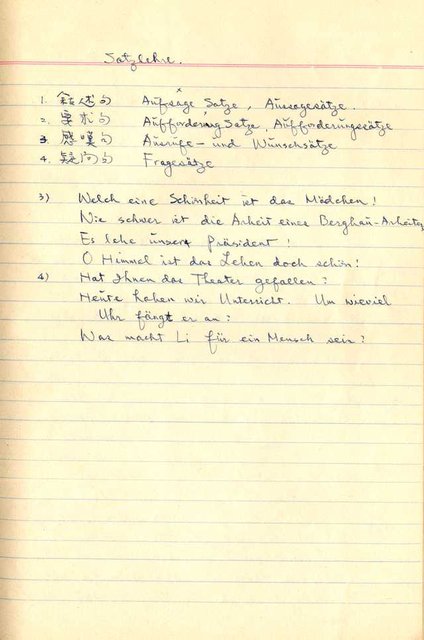 Satzlehre.
1. 叙述句 Aufsage Sätze, Aussagesätze.
2. 要求句 Aufforderung Sätze, Aufforderungssätze
3. 感嘆句 Ausrufe- und Wunschsätze
4. 疑问句 Fragesätze
3) Welch eine Schönheit ist das Mädchen!
Wie schwer ist die Arbeit eines Bergbau-Arbeiters
Es lebe unser Präsident!
O Himmel ist das Leben doch schön!
4) Hat Ihnen das Theater gefallen?
Heute haben wir Unterricht. Um wieviel
Uhr fängt er an?
Was macht Li für ein Mensch sein?